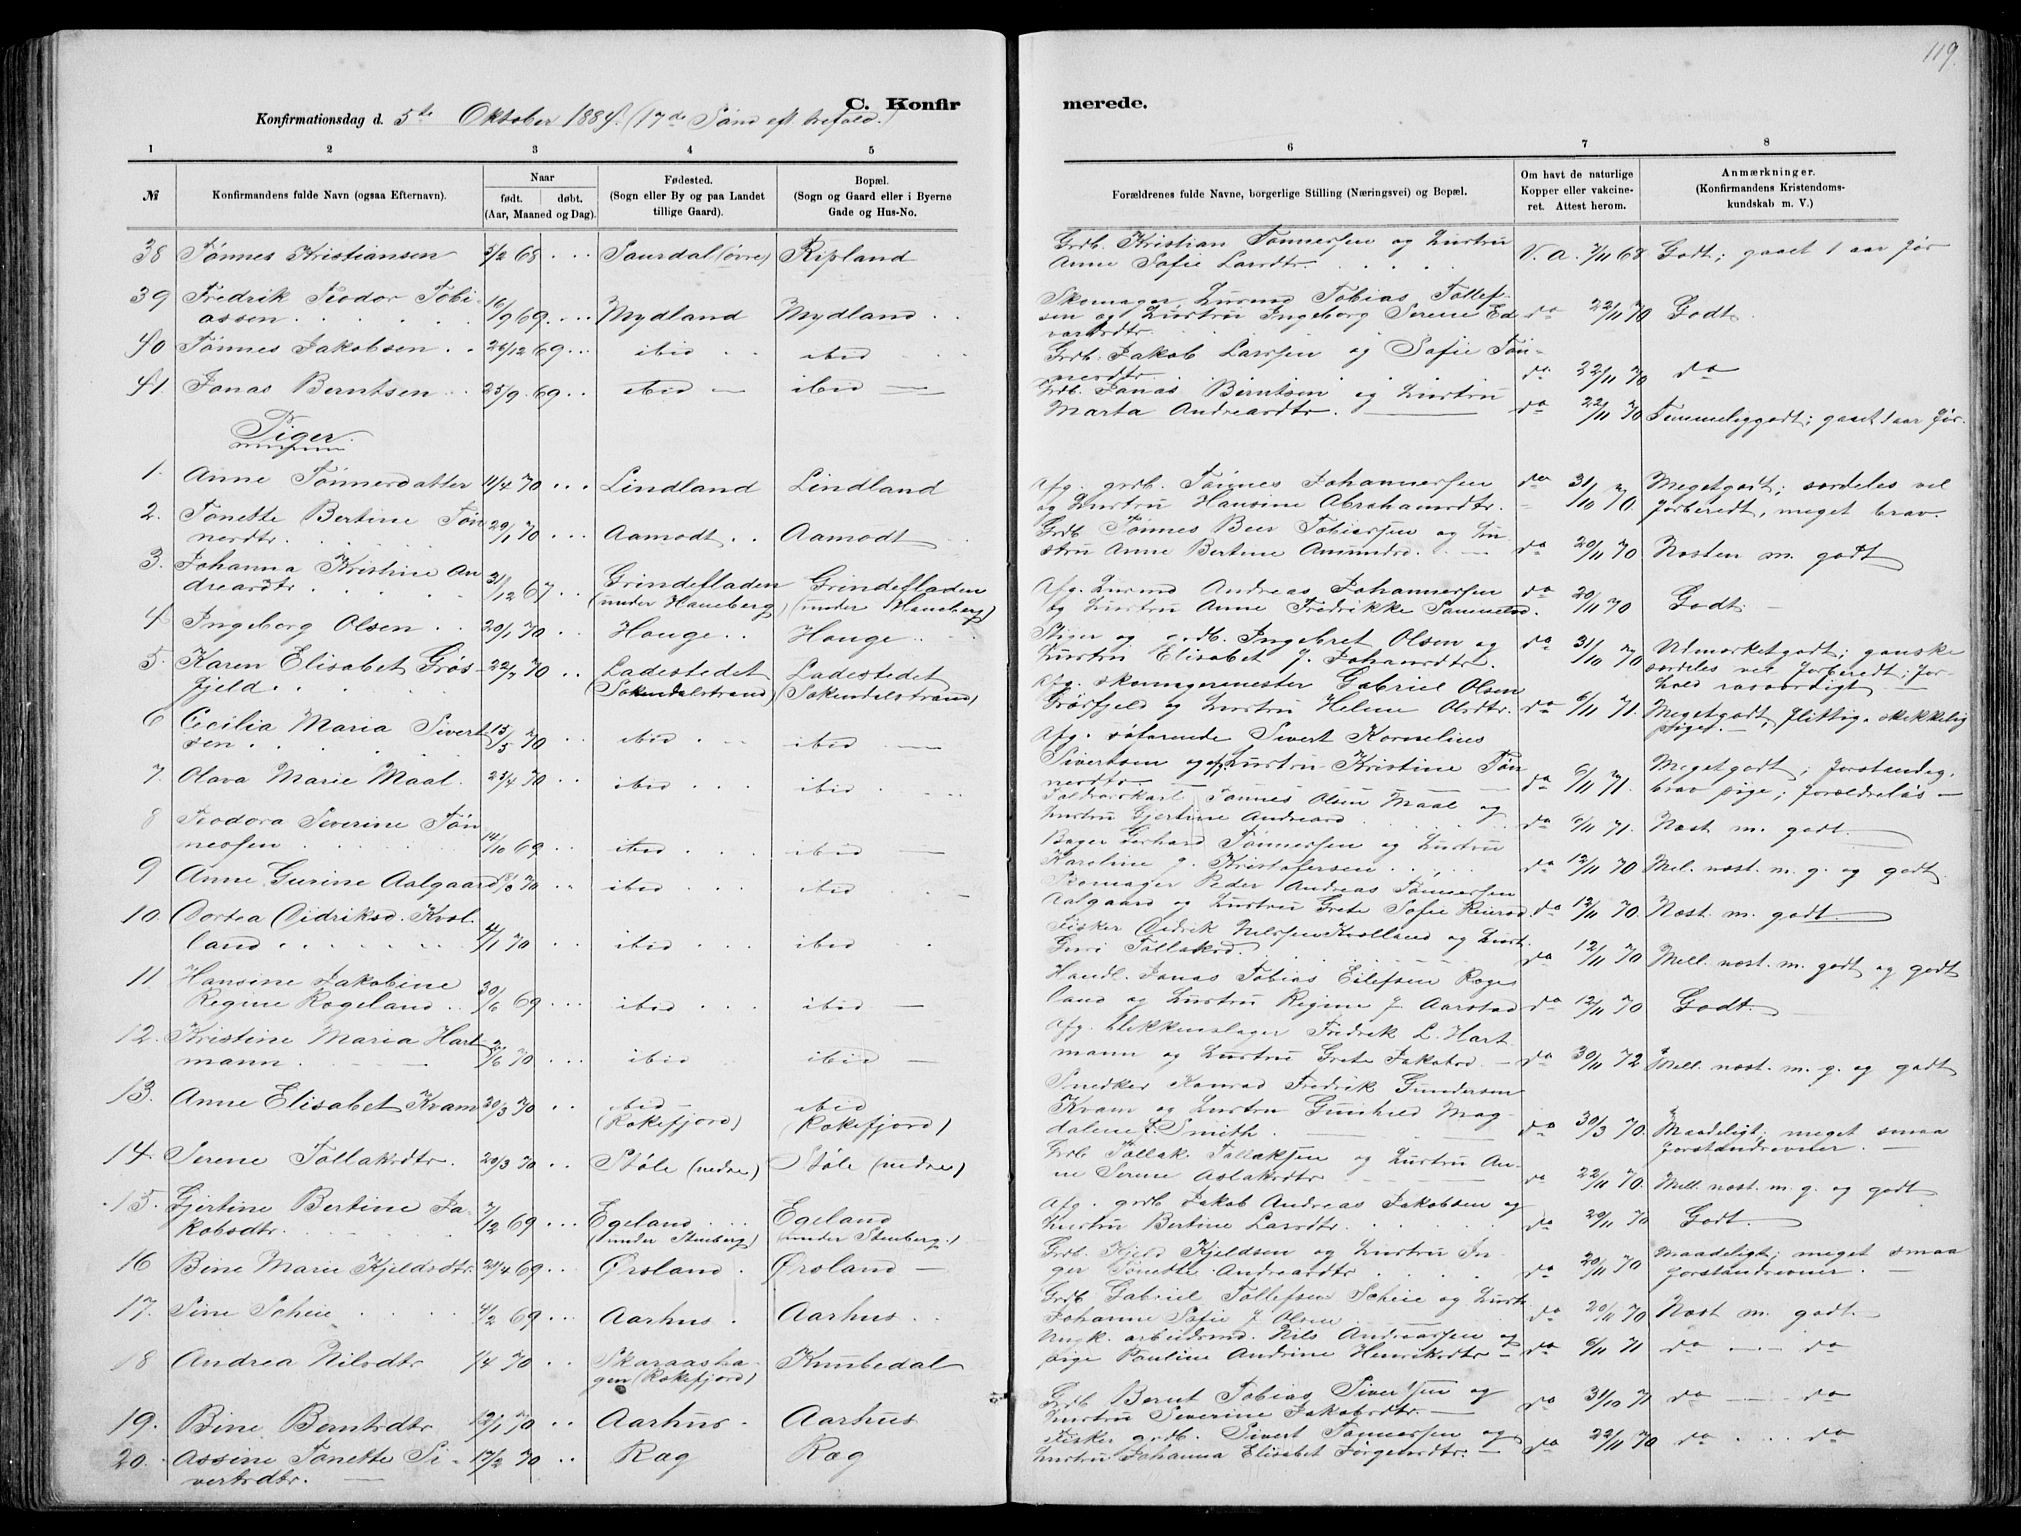 119.
C. Konfirmerede.
Konfirmationsdag d. 5te Oktober 1884. (17de Sønd eft. trefold.)
1 2 3 4 5 6 7 8
№
Konfirmandens fulde Navn (ogsaa Efternavn).
Naar
født. døbt.
(Aar, Maaned og Dag).
Fødested.
(Sogn eller By og paa Landet
tillige Gaard).
Bopæl.
(Sogn og Gaard eller i Byerne
Gade og Hus-No.
Forældrenes fulde Navne, borgerlige Stilling (Næringsvei) og Bopæl.
Om havt de naturlige
Kopper eller vakcine-
ret. Attest herom.
Anmærkninger.
(Konfirmandens Kristendoms-
kundskab m. V.)
38 Tønnes Kristiansen 5/2 68 Saurdal (øvre) Ripland Grdb. Kristian Tønnessen og Hustru
Anne Sofie Larsdtr. V. A. 7/11 68 Godt; gaaet 1 aar før
39 Fredrik Teodor Tobi-
assen 16/9 69 Mydland Mydland Skomager, Husmd Tobias Tollef-
sen og Hustru Ingeborg Serene Ed-
vardsdtr. do 22/11 70 Godt
40 Tønnes Jakobsen 26/12 69 ibid ibid Grdb. Jakob Larssen og Sofie Tøn-
nesdtr. do 22/11 70 do
41. Jonas Berntsen 25/9 69 ibid ibid Grdb. Jonas Berntsen og Hustru
Marta Andreasdtr. do 22/11 70 Temmeliggodt; gaaet 1 aar før.
Piger.
1. Anne Tønnesdatter 11/4 70 Lindland Lindland Afg. grdb. Tønnes Johannessen
og Hustru Hansine Abrahamsdtr. do 31/10 70. Megetgodt; særdeles vel
forberedt, meget brav
2. Tonette Bertine Tøn
nesdtr. 29/1 70 Aamodt Aamodt Grdb Tønnes Beer Tobiassen og Hu
stru Anne Bertine Amundsd. do 20/11 70. Næsten m. godt
3. Johanna Kristine An
dreasdtr 31/12 67 Grindefladen
(under Haneberg) Grindefladen
(under Haneberg) Afg. Husmd Andreas Johannessen
og Hustru Anne Fredrikke do 20/11 70 Godt.
4 Ingeborg Olsen 20/1 70 Hauge Hauge Stiger og grdb. Ingebret Olsen og
Hustru Elisabet f. Johansdtr. do 31/10 70 Udmærketgodt; ganske
særdeles vel forberedt; for-
hold rosværdigt
5. Karen Elisabet Grøs-
fjeld 22/7 70 Ladestedet
(Sokndalstrand) Ladestedet
(Sokndalstrand) Afg. skomagermester Gabriel Olsen
Grøsfjeld og Hustru Helene Olsdtr. do 6/11 71. Megetgodt, flittig, skikkelig
pige.
6 Cecilia Maria Sivert
sen 15/5 70 ibid ibid Afg. søfarende Sivert Kornelius
Sivertsen og Hustru Kristine Tøn
nesdtr do 6/11 71. Megetgodt; forstandig,
brav pige; forældreløs
7. Olava Marie Maal 23/4 70 ibid ibid Tønnes Olsen Maal og
Hustru Gjertine Andreasd do 6/11 71. Næst m. godt.
8 Teodora Severine Tøn
nessen 14/10 69 ibid ibid Bager Gerhard Tønnessen og Hustru
Karoline f. Kristofersen do 12/11 70 Mel. næst. m. g. og godt
9 Anne Gurine Aalgaard 70 ibid ibid Skomager Peder Andreas Tønnessen
Aalgaard og Hustru Grete Sofie Reiersd. do 12/11 70. Næst. m. godt.
10. Dortea Didriksd. Kvol
land 4/1 70 ibid ibid Fisker Didrik Nilssen Kvolland og Hust.
Guri Tollaksd. do 12/11 70 Mell. næst. m. godt og godt
11 Hansine Jakobine
Regine Rægeland 30/6 69 ibid ibid Handl. Jonas Tobias Eilefsen Ræge
land og Hustru Regine f. Aarstad do 12/11 70 Godt.
12. Kristine Maria Hart
mann /6 70 ibid ibid Afg. blikkenslager Fredrik L. Hart
mann og Hustru Grete Jakobsd. do 30/11 72 Mell. næst. m. g. og godt
13. Anne Elisabet Kvam 20/3 70 ibid
(Rækefjord) ibid
(Rækefjord) Snedker Konrad Fredrik Gundersen
Kvam og Hustru Gunhild Mag
dalene f. Smith. do 30/3 70. Maadeligt; meget smaa
forstandsevner.
14. Serene Tollaksdtr. 20/3 70 Støle (nedre) Støle (nedre) Grdb Tollak Tollaksen og Hustru An-
ne Serene Aslaksdtr do 22/11 70. Mell. næst. m. g. og godt
15. Gjertine Bertine Ja-
kobsdtr. 7/12 69 Egeland
(under Stenberg) Egeland
(under Stenberg.) Afg. grdb Jakob Andreas Jakobsen og
Hustru Bertine Larsdtr do 20/11 70 Godt.
16 Bine Marie Kjeldsdtr 24/4 69 Ørsland Ørsland Grdb. Kjeld Kjeldsen og Hustru In-
ger Tonette Andreasdtr do 20/11 70 Maadeligt; meget smaa
forstandsevner.
17. Sine Scheie 4/2 69 Aarhus Aarhus Grdb Gabriel Tollefsen Scheie og Hustr.
Johanne Sofie f. Olsen do 20/11 70 Næst m. godt.
18 Andrea Nilsdtr 1/4 70 Skaraasha-
gen (Rækefjord) Knubedal Ungk. arbeidsmd. Nils Andreassen og
pige Pauline Andrine Henriksdtr do 6/11 71 do do
19. Bine Berntsdtr 12/1 70 Aarhus Aarhus Grdb Bernt Tobias Sivertsen og
Hustru Severine Jakobsdtr. do 31/10 71 do do
20. Assine Tonette Si-
vertsdtr. 17/2 70 Ræg Ræg Fisker grdb. Sivert Tønnessen og
Hustru Johanna Elisabet Jørgensdtr. do 22/11 70 do do